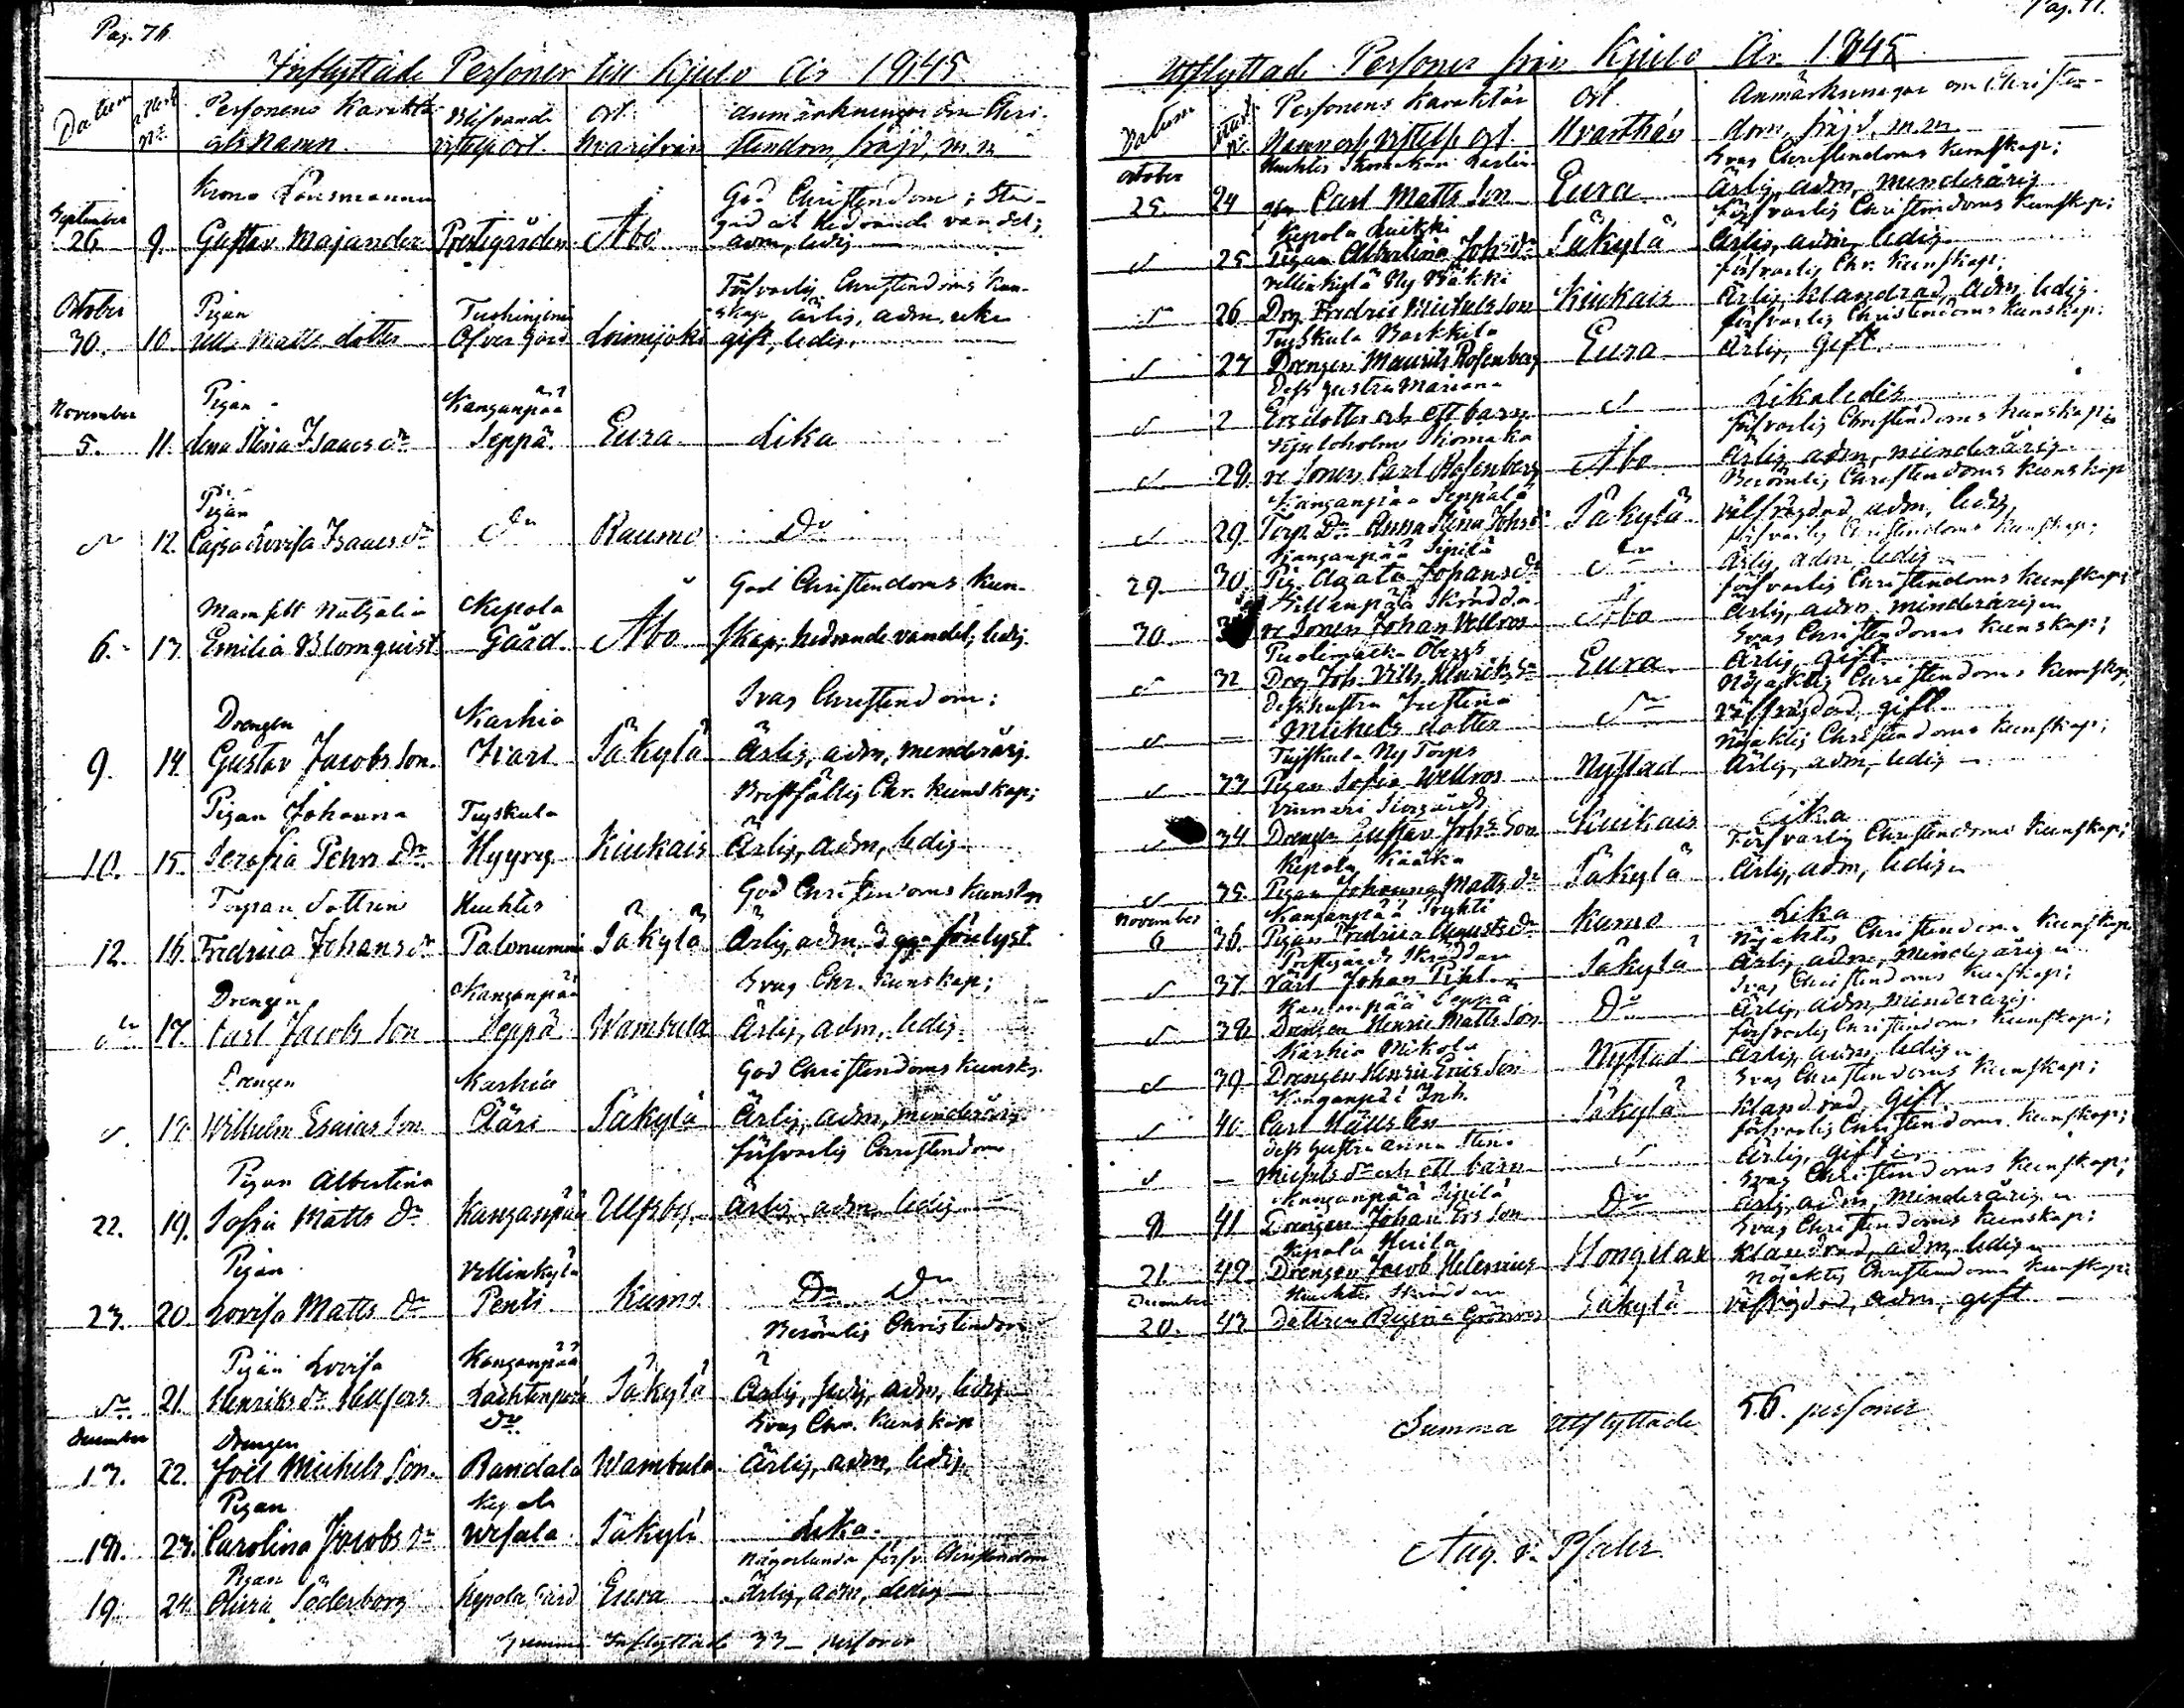 Pag. 76
Inflyttade Personer till Kjulo År 1845
Datum Personens Karaktär Blifvande ort Anmärkningar om Chri-
och Namn. vistelseort. hvarifrån stendom, fräjd, m.m
Krono Länsmannen God Christendom; Sta-
September gad och hedrande vandel;
26. 9. Gustav Majander Prestegården Åbo adm, ledig
Försvarlig Christendoms kun-
October Pigan skap ärlig, adm, icke
30. 10 Ulla Matts dotter Öfver Gård Loimijoki gift, ledig.
November Pigan Kanganpää
5. 11. Lena Stina Isaacs dr Seppä. Eura Lika
Pigan
dr 12. Cajsa Lovisa Isaacs dr dr Raumo Do
God Christendoms kun-
Mamsell Nathalia Kepola
6. 13. Emilia Blomquist Gård. Åbo skap; hedrande vandel; ledig.
Svag Christendom;
Drengen Karhia
9. 14. Gustav Jacobs Son. Ivari Säkylä Ärlig, adm, minderårig.
Bristfällig Chr. Kunskap;
Pigan Johanna Tuiskula
10. 15. Serafia Pehrs Dr Hyyryy Kiukais Ärlig, adm, ledig
God Christendoms kunskap
Torpare dottren Huchtis
12. 16. Fredrica Johans dr Palonummi Säkylä Ärlig, adm, 3 gg. förelyst
Svag Chr. Kunskap;
Drengen Kanganpää
dr 17. Carl Jacobs Son Seppä Wambula Ärlig, adm, ledig.
God Christendoms kunsk.
Drengen Karhia
18. Wilhelm Esaias Son Ääri Säkylä Ärlig, adm, minderårig
försvarlig Christendom
Pigan Albertina
22. 19. Sofia Matts dr Kanganpää Ulfsby Ärlig, adm, ledig
Pigan Vellinkylä
23. 20 Lovisa Matts dr Penti Kumo Dr Dr
Berömlig Christendom
Pigan Lovisa Kanganpää
dr. 21. Henriks dr Hellfors Lachtenperä Säkylä Ärlig, adm, ledig
December Do Svag Chr. Kunskap
Drengen
13. 22. Joel Michels Son. Randala Wambula Ärlig, adm, ledig.
Pigan Kepola
18. 23. Carolina Jacobs dr Säkylä Lika.
Någorlunda försv. Christendom
Pigan
19. 24. Söderborg Kepola Gård Eura ärlig, adm, ledig
Summa Inflyttade 33 personer
Pag. 77.
Utflyttade Personer från Kjulo År 1845
Datum Personens Karaktär Ort Anmärkningar om Christen-
Namn och vistelse ort Hvarthän dom, fräjd, m.m
October Svag Christendoms kunskap;
25. 24 Carl Matts Son Eura Ärlig, adm, minderårig
Försvarlig Christendoms kunskap;
Kepola
25 Pigan Albertina Johs dr Säkylä Ärlig, adm, ledig
Vellinkylä försvarlig Chr. kunskap;
26. Drg Fredric Michels Son Kiukais Ärlig, klandrad, adm, ledig.
Tuiskula försvarlig Christendoms kunskap;
27 Drengen Maurits Rosenberg Eura Ärlig, gift
Dess hustru Mariana
Ersdotter och ett barn Lika ledes
försvarlig Christendoms kunskap;
Kjuloholms
28. re Sonen Carl Rosenberg Åbo Ärlig, adm, minderårig
Kanganpää Seppälä Berömlig Christendoms kunskap
29. Torp. Dr Anna Stina Johs dr Säkylä välfrägdad, adm, ledig,
Kanganpää Sipilä försvarlig Christendoms kunskap;
29. 30. Pig. Agata Johans dr dr Ärlig, adm, ledig
försvarlig Christendoms kunskap;
30. re Sonen Johan Åbo Ärlig, adm, minderårig
Svag Christendoms kunskap;
32 Drg Joh. Vilh. Henriks Sn Eura Ärlig, gift.
Dess hustru Justina Nöjaktig Christendoms kunskap;
Michels dotter dr välfrägdad, gift.
Tuiskula Ny Torps Nöjaktig Christendoms kunskap;
33 Pigan Sofia Wellros Nystad Ärlig, adm, ledig
34 Drengen Gustav Johs Son Kiukais Lika
Kepola försvarlig Christendoms kunskap;
35. Pigan Johanna Matts dr Säkylä Ärlig, adm, ledig
November Kanganpää
6 36. Pigan Fredrica Augusts dr Kumo Lika
Nöjaktig Christendoms kunskap
37. Johan Säkylä Ärlig, adm, minderårig
Kanganpää Seppä Svag Christendoms kunskap;
38. Drengen Henric Matts Son Do Ärlig, adm, minderårig.
Karhia Mikola försvarlig Christendoms kunskap;
39. Drengen Henric Erics Son Nystad Ärlig, adm, ledig
Kanganpää Inh. Svag Christendoms kunskap;
40. Carl Hällsten Säkylä klandrad, gift
Dess hustru Anna Stina försvarlig Christendoms kunskap;
Michels dr och ett barn Ärlig, gift
Kanganpää Sipilä Svag Christendoms kunskap;
9 41 Drengen Johan Ers Son Do Ärlig, adm, minderårig
Kepola Svag Christendoms kunskap;
21. 42 Drengen Jacob Helenius Hongilax klandrad, adm, ledig
December Nöjaktig Christendoms kunskap;
20. 43. Dottren Regina Grönroos Säkylä välfrägdad, adm, gift
Summa Utflyttade 56. personer
Aug. v. Pfaler